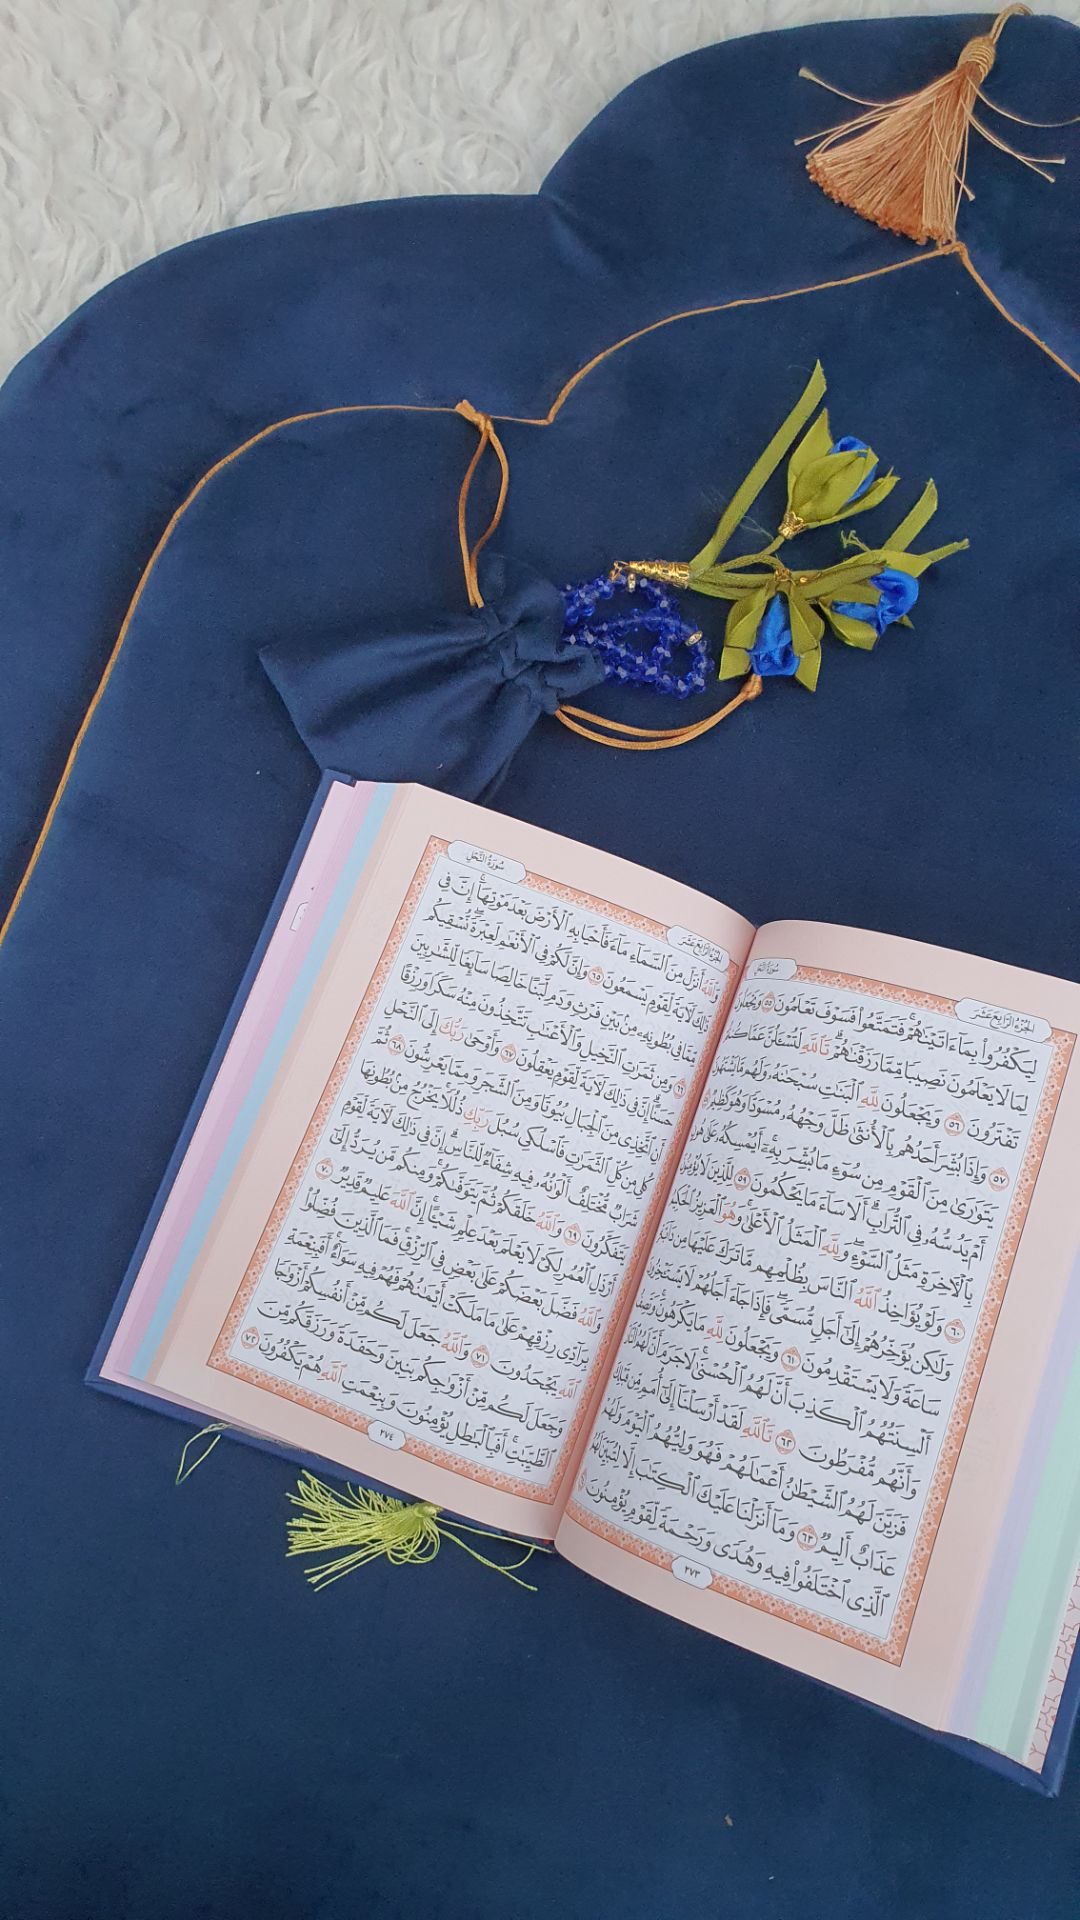 الجُزْءُ الرَّابِعَ عَشَرَ
سُورَةُ النَّحْلِ
لِيَكْفُرُواْ بِمَآ ءَاتَيْنَٰهُمْۚ فَتَمَتَّعُواْ فَسَوْفَ تَعْلَمُونَ ٥٥ وَيَجْعَلُونَ
لِمَا لَا يَعْلَمُونَ نَصِيبٗا مِّمَّا رَزَقْنَٰهُمْۗ تَٱللَّهِ لَتُسْـَٔلُنَّ عَمَّا كُنتُمْ
تَفْتَرُونَ ٥٦ وَيَجْعَلُونَ لِلَّهِ ٱلْبَنَٰتِ سُبْحَٰنَهُۥ وَلَهُم مَّا يَشْتَهُونَ
٥٧ وَإِذَا بُشِّرَ أَحَدُهُم بِٱلْأُنثَىٰ ظَلَّ وَجْهُهُۥ مُسْوَدّٗا وَهُوَ كَظِيمٞ ٥٨
يَتَوَٰرَىٰ مِنَ ٱلْقَوْمِ مِن سُوٓءِ مَا بُشِّرَ بِهِۦٓۚ أَيُمْسِكُهُۥ عَلَىٰ هُونٍ
أَمْ يَدُسُّهُۥ فِي ٱلتُّرَابِۗ أَلَا سَآءَ مَا يَحْكُمُونَ ٥٩ لِلَّذِينَ لَا يُؤْمِنُونَ
بِٱلْأٓخِرَةِ مَثَلُ ٱلسَّوْءِۖ وَلِلَّهِ ٱلْمَثَلُ ٱلْأَعْلَىٰۚ وَهُوَ ٱلْعَزِيزُ ٱلْحَكِيمُ
٦٠ وَلَوْ يُؤَاخِذُ ٱللَّهُ ٱلنَّاسَ بِظُلْمِهِم مَّا تَرَكَ عَلَيْهَا مِن دَآبَّةٖ
وَلَٰكِن يُؤَخِّرُهُمْ إِلَىٰٓ أَجَلٖ مُّسَمّٗىۖ فَإِذَا جَآءَ أَجَلُهُمْ لَا يَسْتَـْٔخِرُونَ
سَاعَةٗ وَلَا يَسْتَقْدِمُونَ ٦١ وَيَجْعَلُونَ لِلَّهِ مَا يَكْرَهُونَۚ وَتَصِفُ
أَلْسِنَتُهُمُ ٱلْكَذِبَ أَنَّ لَهُمُ ٱلْحُسْنَىٰۚ لَا جَرَمَ أَنَّ لَهُمُ ٱلنَّارَ
وَأَنَّهُم مُّفْرَطُونَ ٦٢ تَٱللَّهِ لَقَدْ أَرْسَلْنَآ إِلَىٰٓ أُمَمٖ مِّن قَبْلِكَ
فَزَيَّنَ لَهُمُ ٱلشَّيْطَٰنُ أَعْمَٰلَهُمْ فَهُوَ وَلِيُّهُمُ ٱلْيَوْمَ وَلَهُمْ
عَذَابٌ أَلِيمٞ ٦٣ وَمَآ أَنزَلْنَا عَلَيْكَ ٱلْكِتَٰبَ إِلَّا لِتُبَيِّنَ لَهُمُ
ٱلَّذِي ٱخْتَلَفُواْ فِيهِ وَهُدٗى وَرَحْمَةٗ لِّقَوْمٖ يُؤْمِنُونَ ٦٤
٢٧٣
الجُزْءُ الرَّابِعَ عَشَرَ
سُورَةُ النَّحْلِ
وَٱللَّهُ أَنزَلَ مِنَ ٱلسَّمَآءِ مَآءٗ فَأَحْيَا بِهِ ٱلْأَرْضَ بَعْدَ مَوْتِهَآۚ إِنَّ فِي
ذَٰلِكَ لَأٓيَةٗ لِّقَوْمٖ يَسْمَعُونَ ٦٥ وَإِنَّ لَكُمْ فِي ٱلْأَنْعَٰمِ لَعِبْرَةٗۖ نُّسْقِيكُم
مِّمَّا فِي بُطُونِهِۦ مِنۢ بَيْنِ فَرْثٖ وَدَمٖ لَّبَنًا خَالِصٗا سَآئِغٗا لِّلشَّٰرِبِينَ
٦٦ وَمِن ثَمَرَٰتِ ٱلنَّخِيلِ وَٱلْأَعْنَٰبِ تَتَّخِذُونَ مِنْهُ سَكَرٗا وَرِزْقًا
حَسَنًاۚ إِنَّ فِي ذَٰلِكَ لَأٓيَةٗ لِّقَوْمٖ يَعْقِلُونَ ٦٧ وَأَوْحَىٰ رَبُّكَ إِلَى ٱلنَّحْلِ
أَنِ ٱتَّخِذِي مِنَ ٱلْجِبَالِ بُيُوتٗا وَمِنَ ٱلشَّجَرِ وَمِمَّا يَعْرِشُونَ ٦٨ ثُمَّ
كُلِي مِن كُلِّ ٱلثَّمَرَٰتِ فَٱسْلُكِي سُبُلَ رَبِّكِ ذُلُلٗاۚ يَخْرُجُ مِنۢ بُطُونِهَا
شَرَابٞ مُّخْتَلِفٌ أَلْوَٰنُهُۥ فِيهِ شِفَآءٞ لِّلنَّاسِۚ إِنَّ فِي ذَٰلِكَ لَأٓيَةٗ لِّقَوْمٖ
يَتَفَكَّرُونَ ٦٩ وَٱللَّهُ خَلَقَكُمْ ثُمَّ يَتَوَفَّىٰكُمْۚ وَمِنكُم مَّن يُرَدُّ إِلَىٰٓ
أَرْذَلِ ٱلْعُمُرِ لِكَيْ لَا يَعْلَمَ بَعْدَ عِلْمٖ شَيْـًٔاۚ إِنَّ ٱللَّهَ عَلِيمٞ قَدِيرٞ ٧٠
وَٱللَّهُ فَضَّلَ بَعْضَكُمْ عَلَىٰ بَعْضٖ فِي ٱلرِّزْقِۚ فَمَا ٱلَّذِينَ فُضِّلُواْ
بِرَآدِّي رِزْقِهِمْ عَلَىٰ مَا مَلَكَتْ أَيْمَٰنُهُمْ فَهُمْ فِيهِ سَوَآءٌۚ أَفَبِنِعْمَةِ
ٱللَّهِ يَجْحَدُونَ ٧١ وَٱللَّهُ جَعَلَ لَكُم مِّنْ أَنفُسِكُمْ أَزْوَٰجٗا
وَجَعَلَ لَكُم مِّنْ أَزْوَٰجِكُم بَنِينَ وَحَفَدَةٗ وَرَزَقَكُم مِّنَ
ٱلطَّيِّبَٰتِۚ أَفَبِٱلْبَٰطِلِ يُؤْمِنُونَ وَبِنِعْمَتِ ٱللَّهِ هُمْ يَكْفُرُونَ ٧٢
٢٧٤